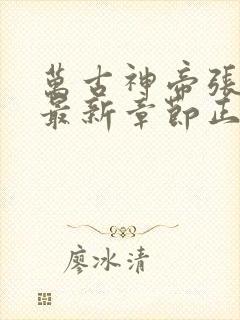 萬古神帝張
最新章節正
廖冰清